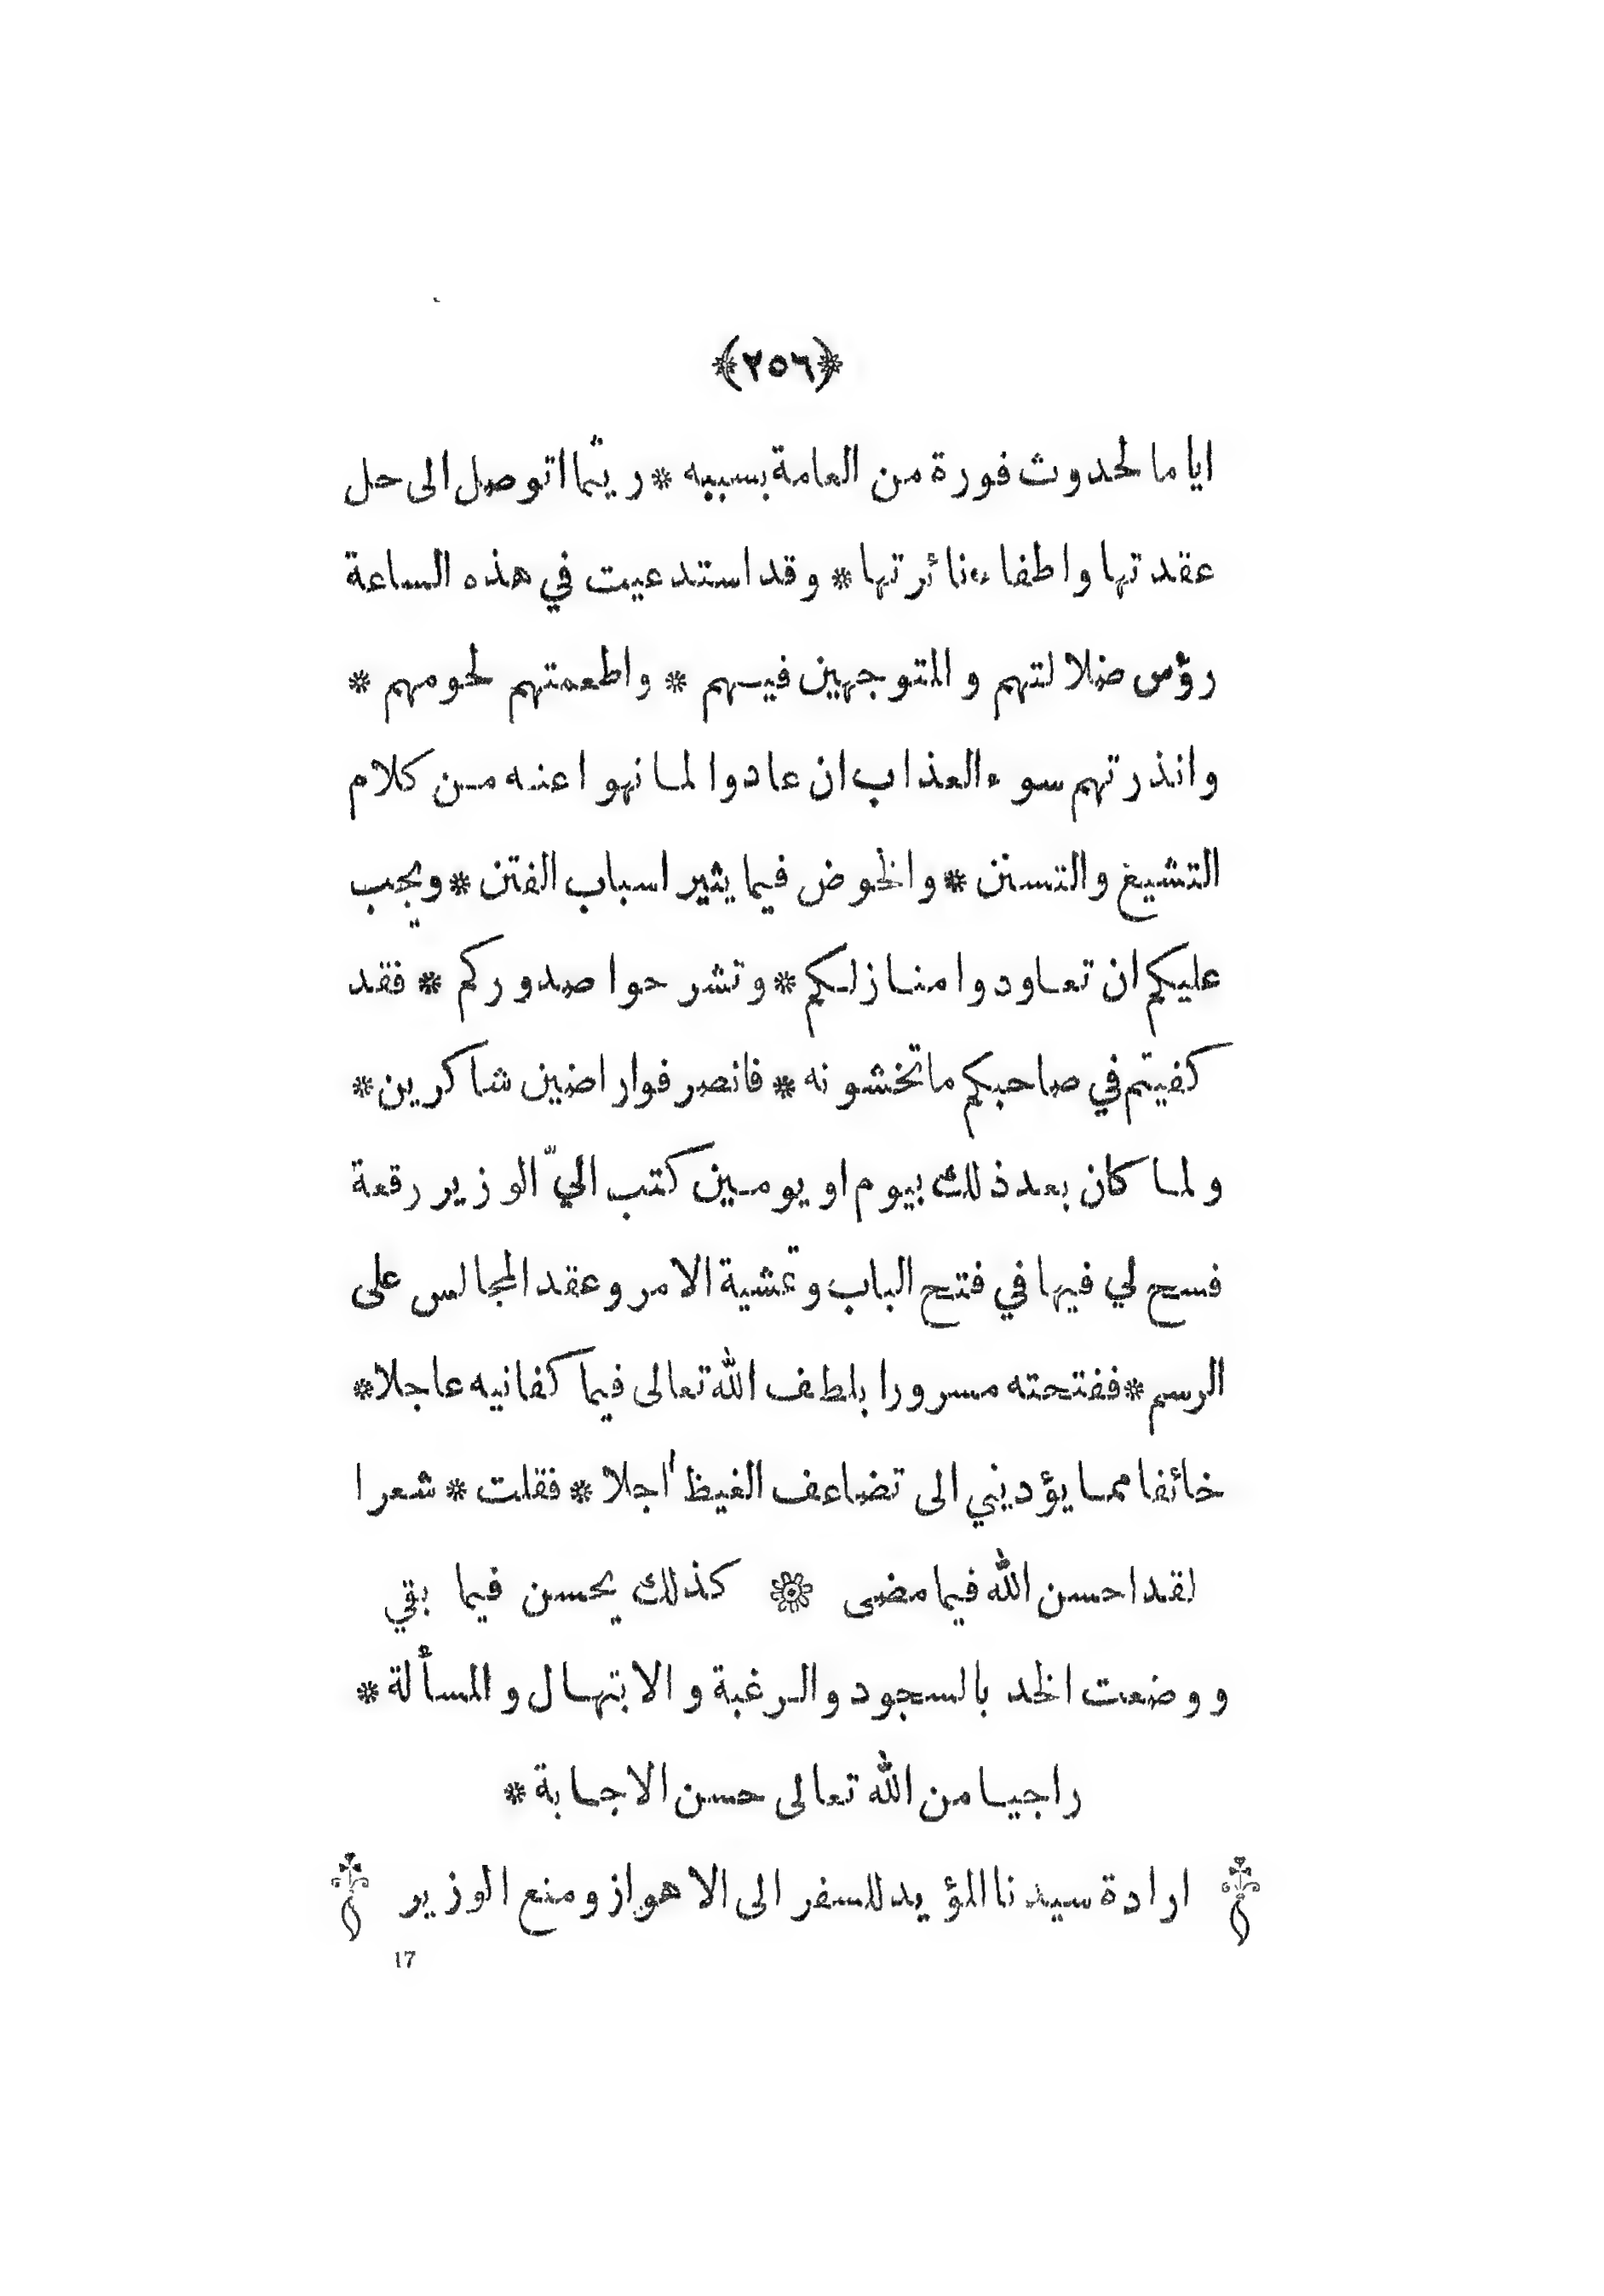 ﴿٢٥٦﴾
اياما لحدوث فورة من العامة بسببه * ريثما اتوصل الى حل
عقدتها واطفاء نائرتها * وقد استدعيت في هذه الساعة
رؤس ضلالتهم والمتوجهين فيهم * واطعمتهم لحومهم *
وانذرتهم سوء العذاب ان عادوا لما نهوا عنه من كلام
التشيغ والتسنن * والخوض فيما يثير اسباب الفتن * ويجب
عليكم ان تعاودوا منازلكم * وتشرحوا صدوركم * فقد
كفيتم في صاحبكم ما تخشونه * فانصرفوا راضين شاكرين *
ولما كان بعد ذلك بيوم او يومين كتب اليّ الوزير رقعة
فسح لي فيها في فتح الباب وتمشية الامر وعقد المجالس على
الرسم * ففتحته مسرورا بلطف الله تعالى فيما كفانيه عاجلا *
خائفا مما يؤديني الى تضاعف الغيظ اٰجلا * فقلت * شعرا
لقد احسن الله فيما مضى ۞ كذلك يحسن فيما بقي
ووضعت الخد بالسجود والرغبة والابتهال والمسألة *
راجيا من الله تعالى حسن الاجابة *
ارادة سيدنا المؤيد للسفر الى الاهواز ومنع الوزير
17